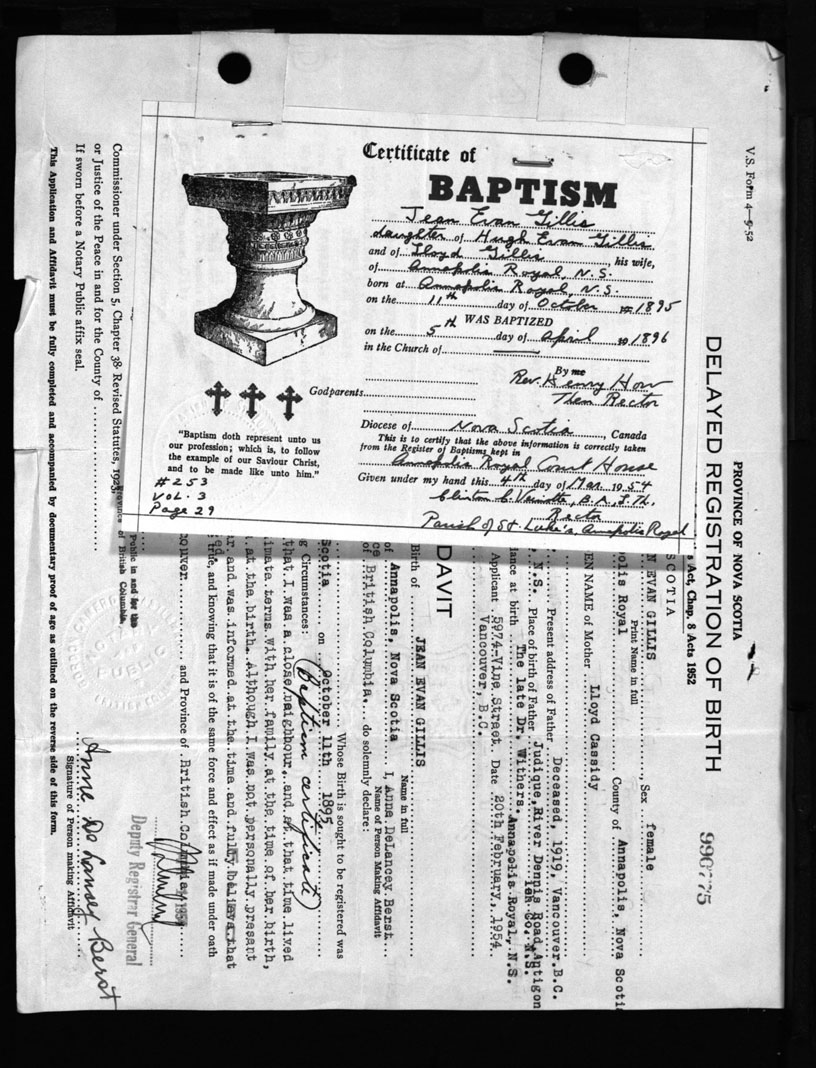 Certificate of
BAPTISM
Jean Evan Gillis
daughter of Hugh Evan Gillis
and of Lloyd Gillis, his wife,
of Annapolis Royal, N.S.
born at Annapolis Royal, N.S.
on the 11th day of October 1895
WAS BAPTIZED
on the 5th day of April 1896
in the Church of
By me
Rev. Henry How
Then Rector
Godparents
Diocese of Nova Scotia, Canada
This is to certify that the above information is correctly taken
from the Register of Baptisms kept in
Annapolis Royal Court House
Given under my hand this 4th day of Mar. 1954
Clinton C. B.A., L.Th.
Rector
Parish of St. Luke's Annapolis Royal
"Baptism doth represent unto us
our profession; which is, to follow
the example of our Saviour Christ,
and to be made like unto him."
#253
VOL. 3
Page 29
V.S. Form 4—9-52
PROVINCE OF NOVA SCOTIA
DELAYED REGISTRATION OF BIRTH
990775
s Act, Chap. 8 Acts 1952
SCOTIA
N EVAN GILLIS, Sex female
Print Name in full
polis Royal County of Annapolis, Nova Scoti
EN NAME of Mother Lloyd Cassidy
Present address of Father Deceased, 1919, Vancouver, B.C.
N.S. Place of birth of Father Judique, River Dennis Road, Antigon
ish Co. N.S.
iance at birth The late Dr. Withers, Annapolis Royal, N.S.
Applicant 5974-Vine Street Date 20th February, 1954.
Vancouver, B.C.
DAVIT
Birth of JEAN EVAN GILLIS
Name in full
of Annapolis, Nova Scotia I, Anna DeLancey Berst
Name of Person Making Affidavit
ce of British Columbia, do solemnly declare:
Whose Birth is sought to be registered was
Scotia on October 11th 1895
g Circumstances: (Baptism certificate)
that I was a close neighbour, and at that time lived
imate terms with her family at the time of her birth,
at the birth. Although I was not personally present
r and was informed at the time and fully believe that
true, and knowing that it is of the same force and effect as if made under oath
ouver and Province of British Co
Public in and for the
Province of British Columbia.
Deputy Registrar General
Anne De Lancey Berst
Signature of Person making Affidavit
Commissioner under Section 5, Chapter 38 Revised Statutes, 1923,
or Justice of the Peace in and for the County of
If sworn before a Notary Public affix seal.
This Application and Affidavit must be fully completed and accompanied by documentary proof of age as outlined on the reverse side of this form.